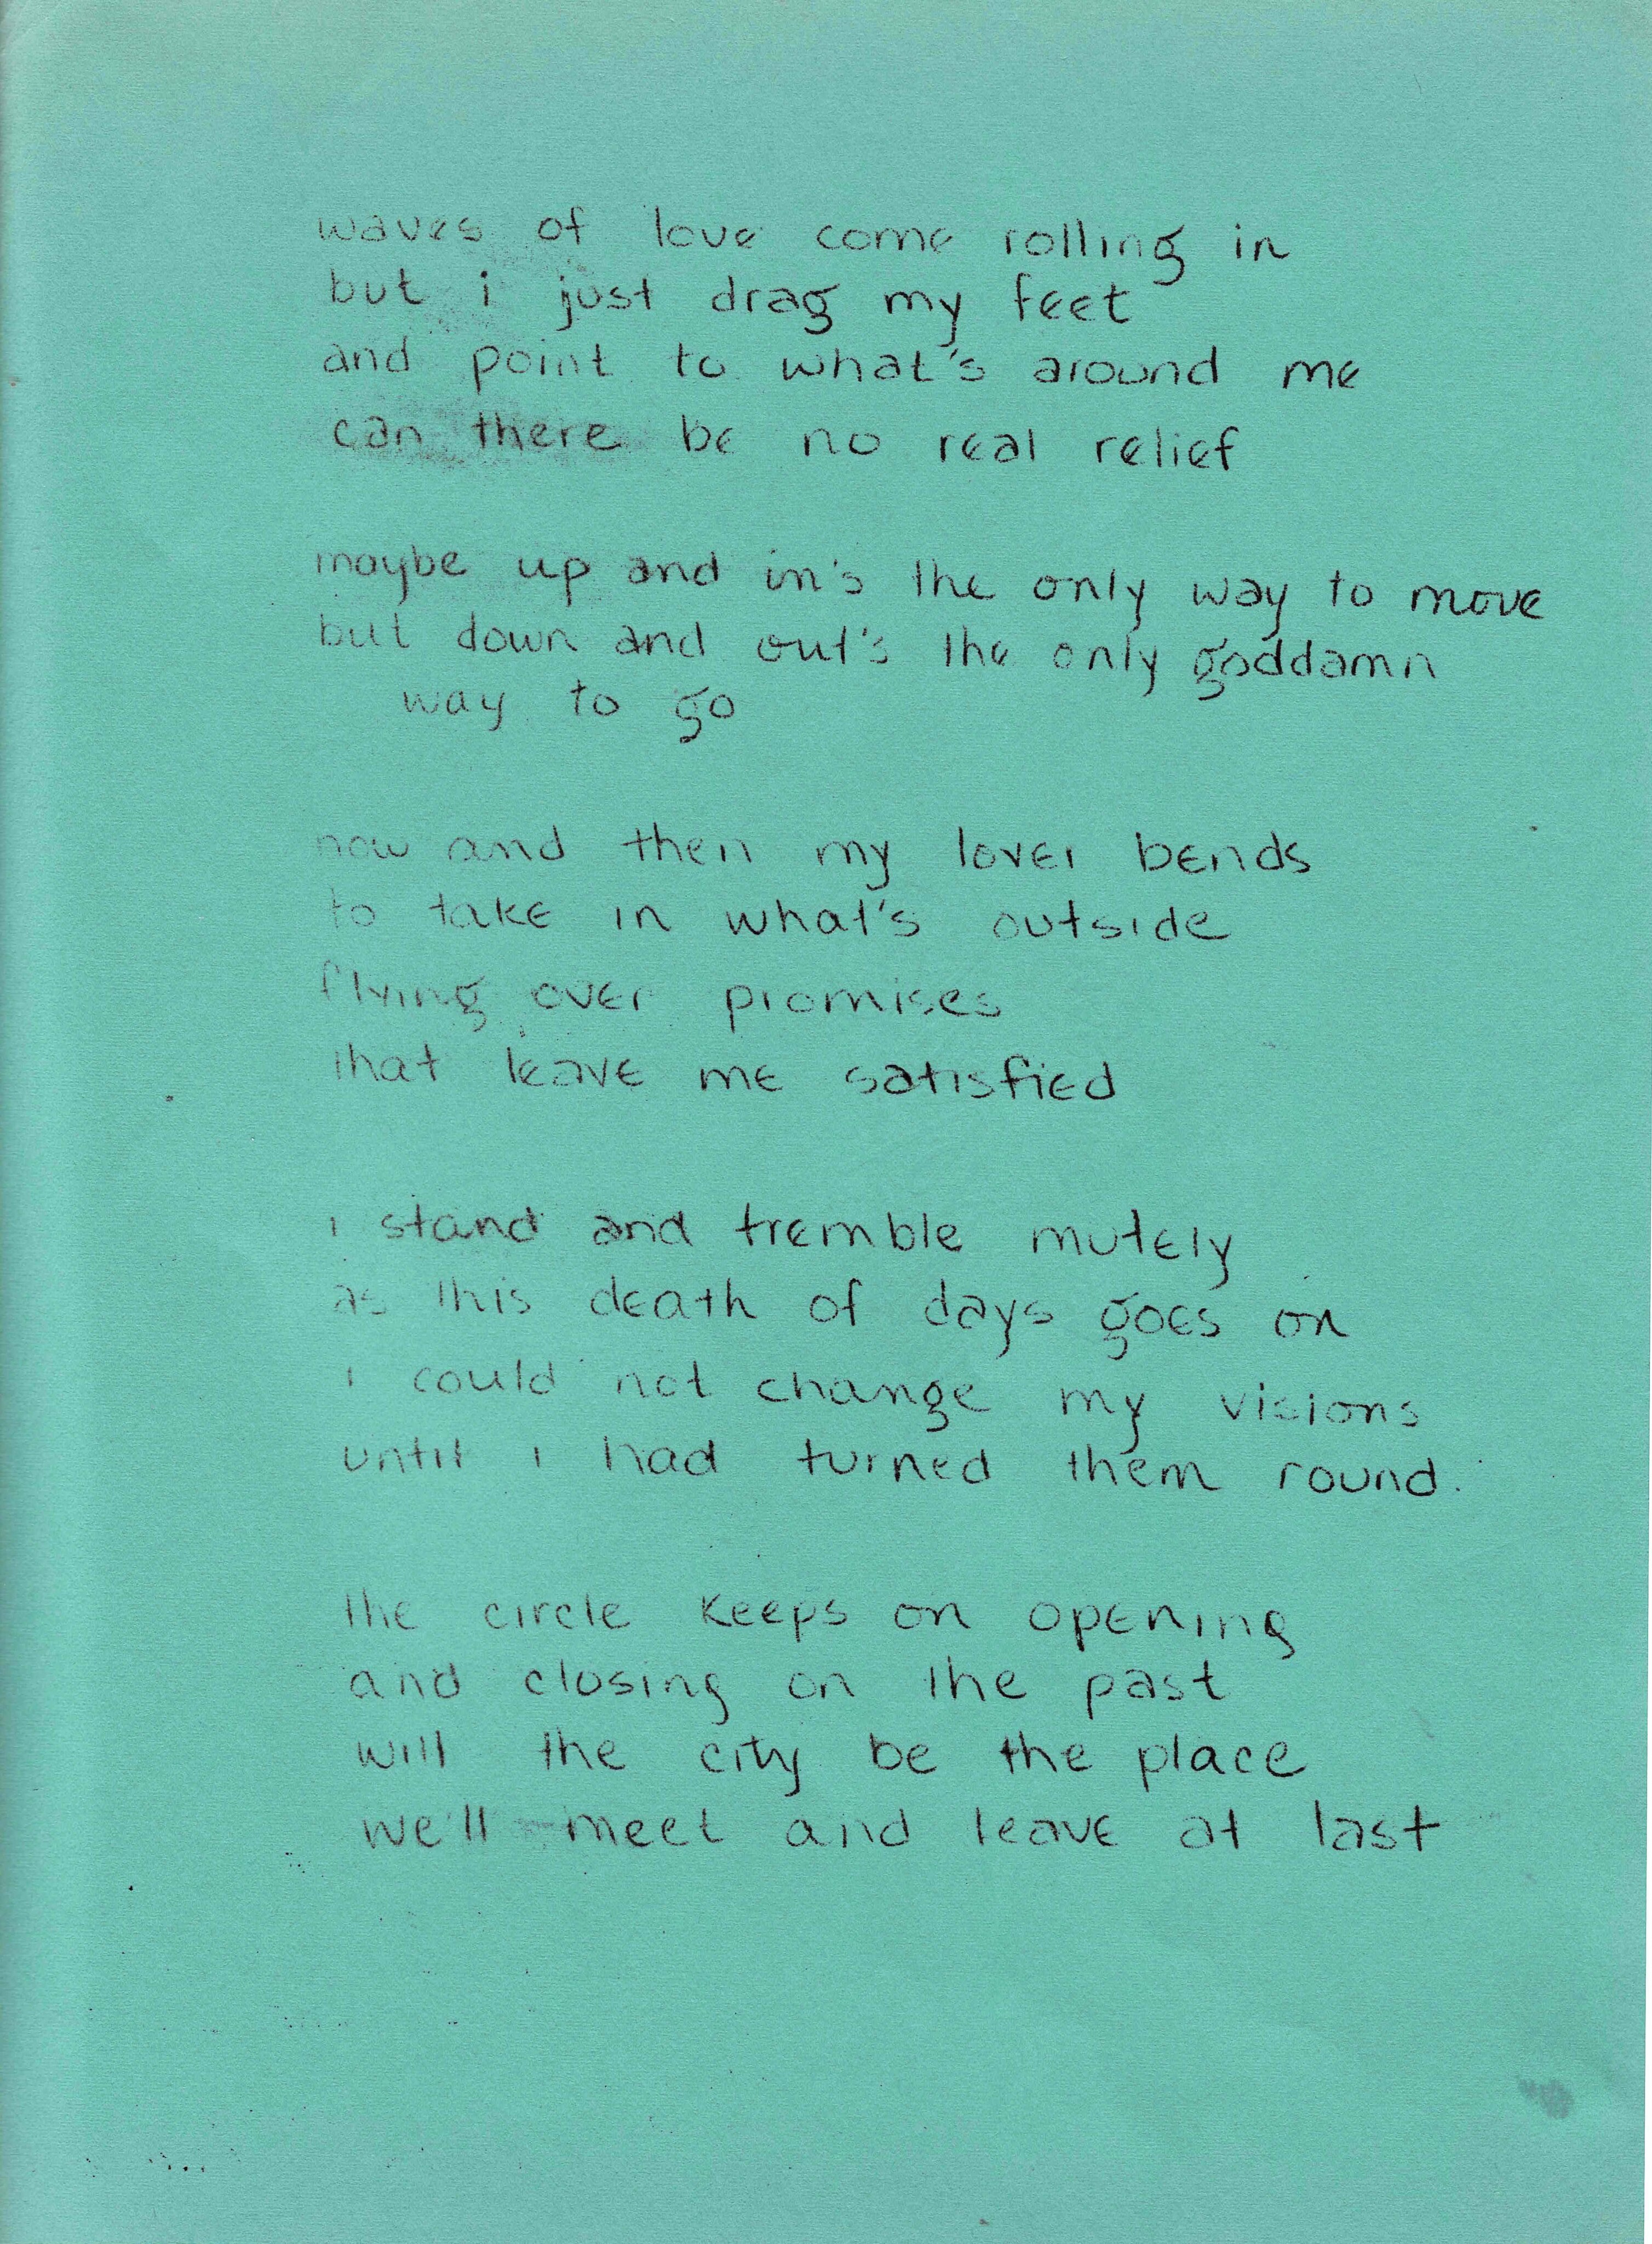 waves of love come rolling in
but i just drag my feet
and point to what's around me
can there be no real relief
maybe up and in's the only way to move
but down and out's the only goddamn
way to go
now and then my lover bends
to take in what's outside
flying over promises
that leave me satisfied
i stand and tremble mutely
as this death of days goes on
i could not change my visions
until i had turned them round.
the circle keeps on opening
and closing on the past
will the city be the place
we'll meet and leave at last